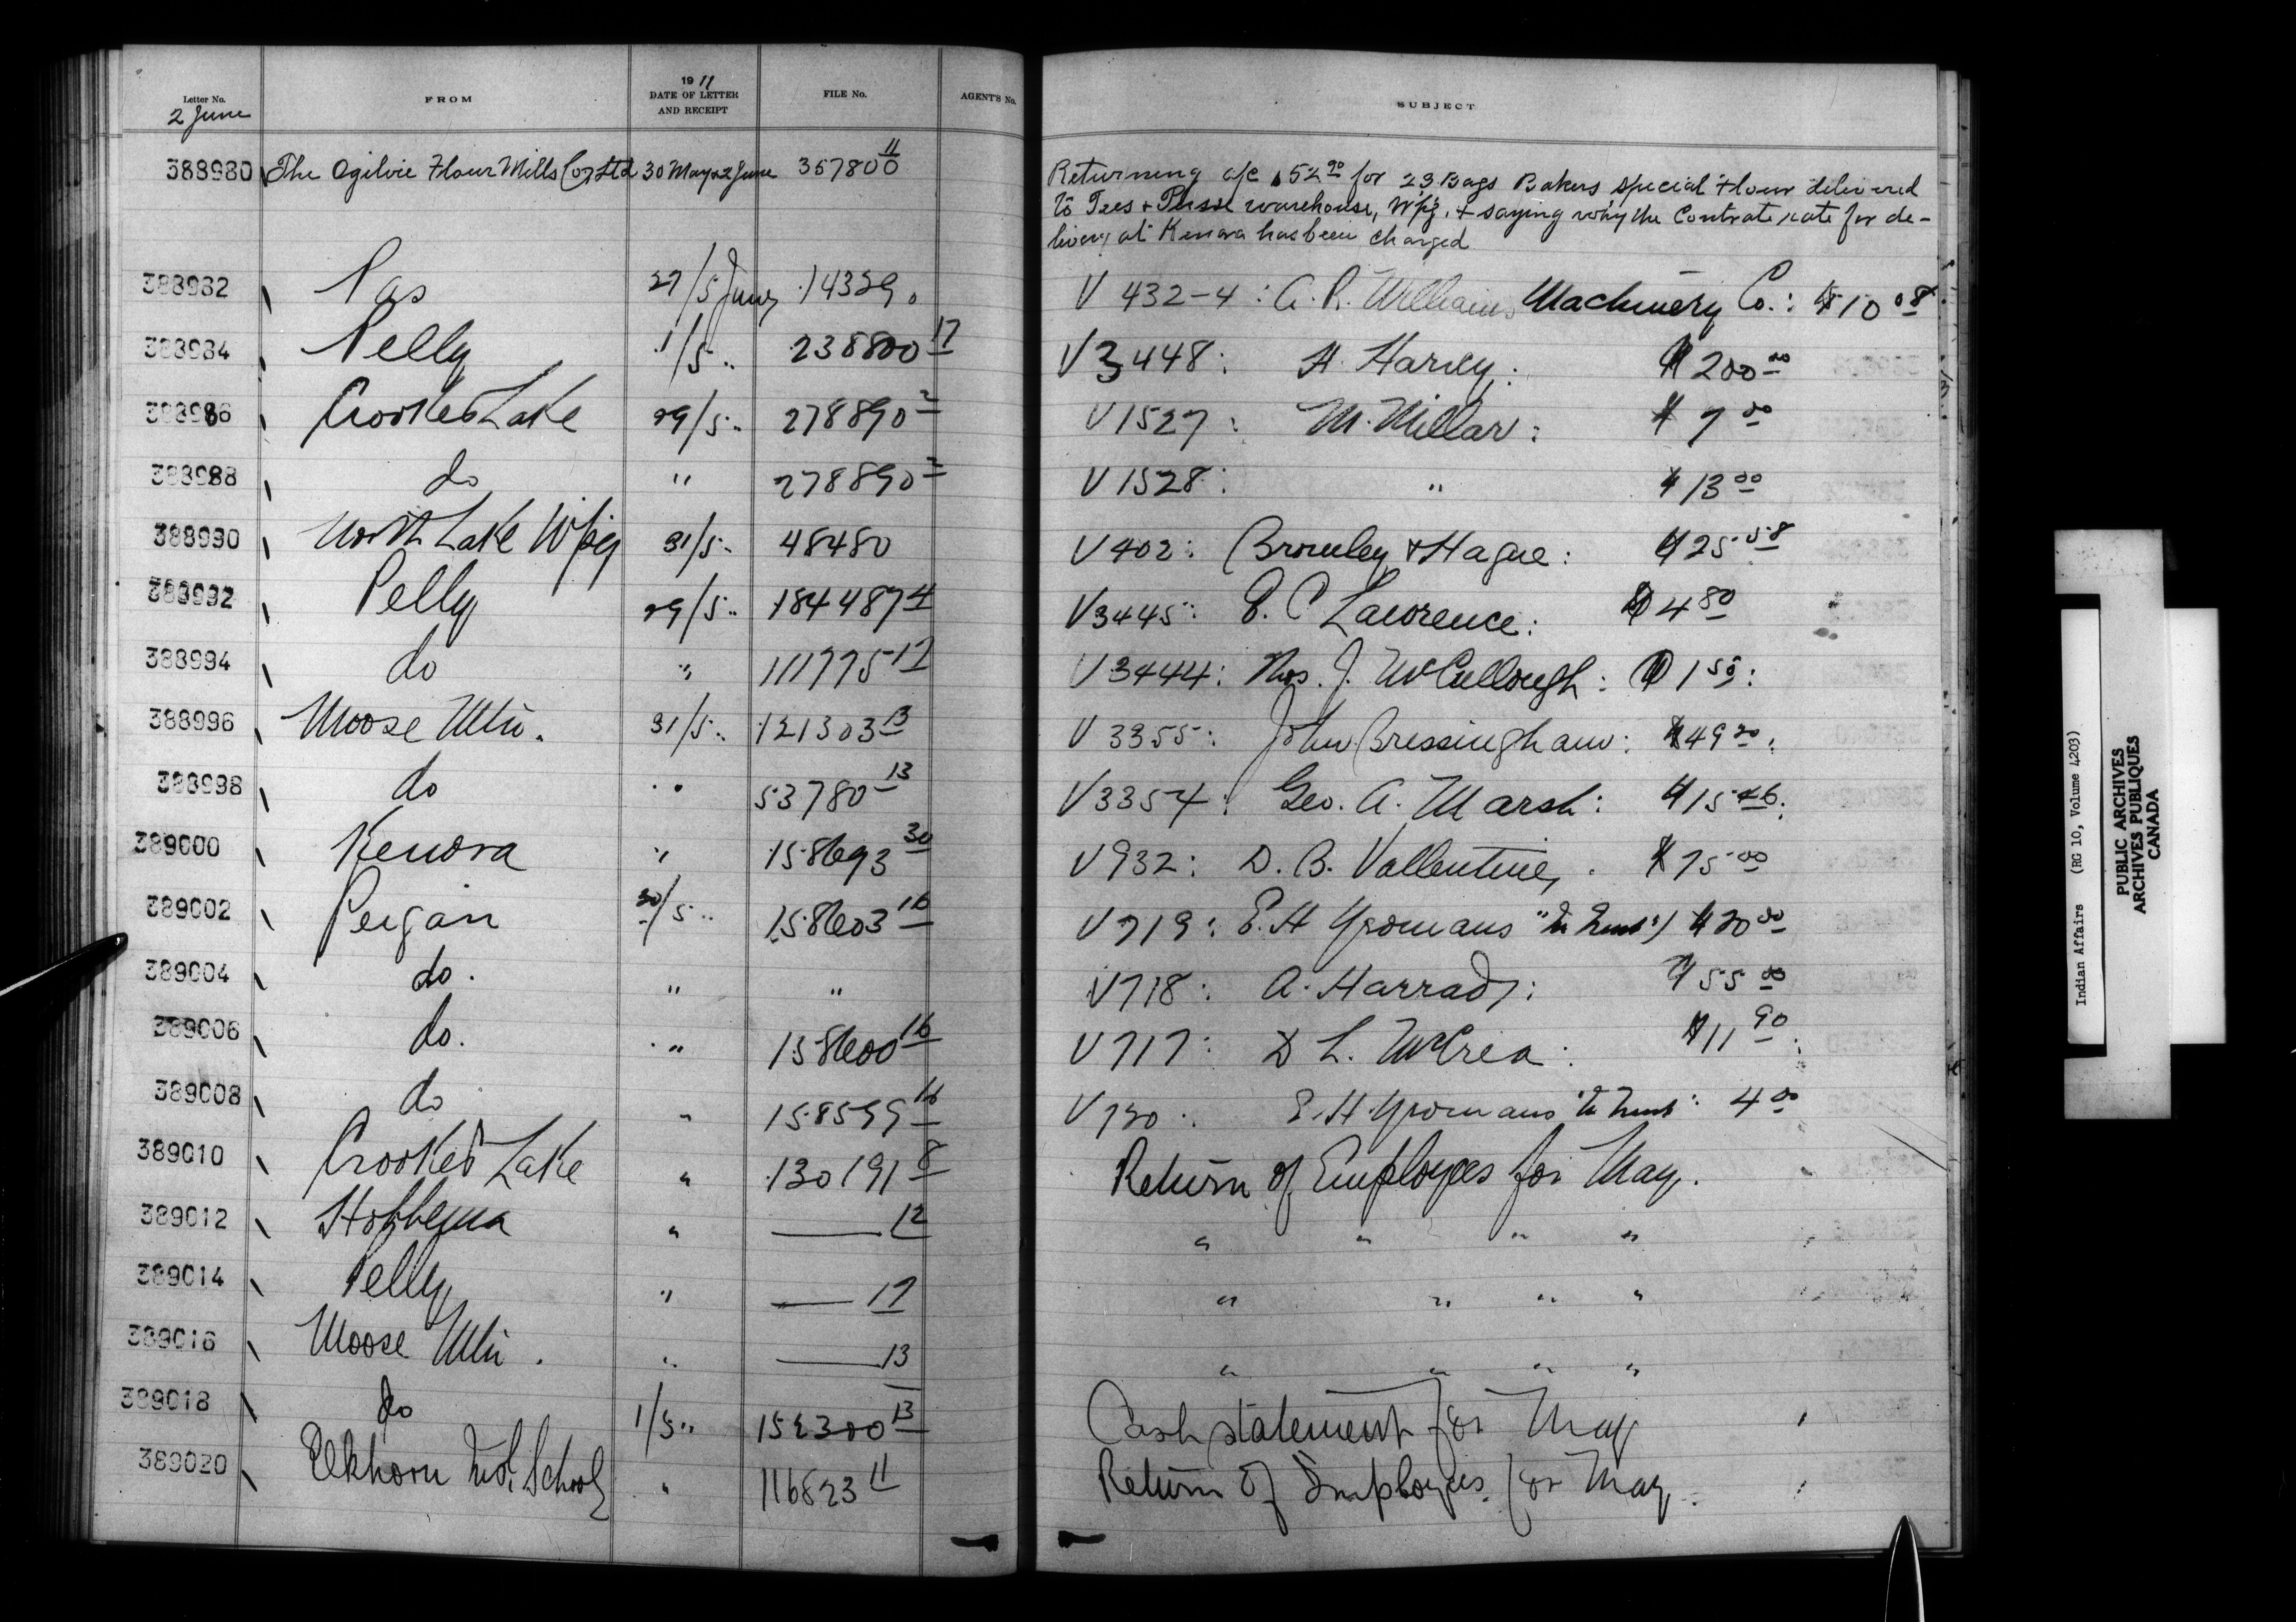 Letter No.
2 June
FROM
19 11
DATE OF LETTER
AND RECEIPT
FILE No.
AGENT'S No.
SUBJECT
388980 The Ogilvie Flour Mills Co Ltd 30 May 2 June 367800 11 Returning a/c $52 90 for 23 Bags Bakers special Flour delivered
to Tees & Persse warehouse, Wpg. & saying why the Contrate rate for de-
livery at Kenora has been charged
388982 Pas 27/5 June 14329 V 432-4 : A. R. Williams Machinery Co. : $10 08
388984 Pelly 1/5 " 238800 17 V 3448 : H. Harvey : $200 00
388986 Crooked Lake 29/5 " 278890 2 V 1527 : M. Millar : $7 00
388988 do " 278890 2 V 1528 : " $13 00
388990 North Lake Wpeg 31/5 " 48480 V 402 : Bromley & Hague : $25 58
388992 Pelly 29/5 " 184487 4 V 3445 : E. C Lawrence : $4 80
388994 do " 111775 17 V 3444 : Thos. J. McCullough : $1 50 :
388996 Moose Mtn. 31/5 " 121303 13 V 3355 : John Bressingham : $49 20 :
388998 do " 53780 13 V 3354 : Geo. A. Marsh : $15 46 :
389000 Kenora " 158693 30 V 932 : D. B. Vallentine, . $75 00
389002 Peigan 30/5 " 158603 16 V 719 : E. H Yeomans "In Trust") $20 00
389004 do. " " V 718 : A. Harrad, : $55 00
389006 do. " 158600 16 V 717 : D L. McCrea : $11 90 :
389008 do " 158599 16 V 720 : E. H. Yeomans "In Trust" : 4 00
389010 Crooked Lake " 130191 8 Return of Employees for May.
389012 Hobbema " — 12 " " " "
389014 Pelly " — 17 " " " "
389016 Moose Mtn. " — 13 " " " "
389018 do 1/5 " 152300 13 Cash statement for May
389020 Elkhorn Ind. School " 116823 11 Return of Employees for May
Indian Affairs (RG 10, Volume 4203)
PUBLIC ARCHIVES
ARCHIVES PUBLIQUES
CANADA